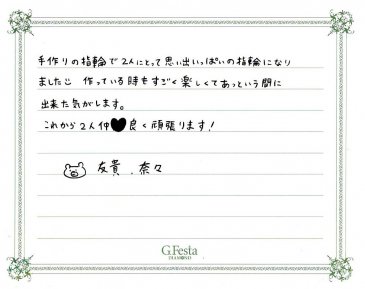 手作りの指輪で2人にとって思い出いっぱいの指輪になり
ました☺ 作っている時もすごく楽しくてあっという間に
出来た気がします。
これから2人仲♥良く頑張ります!
友貴.奈々
G.Festa
DIAMOND